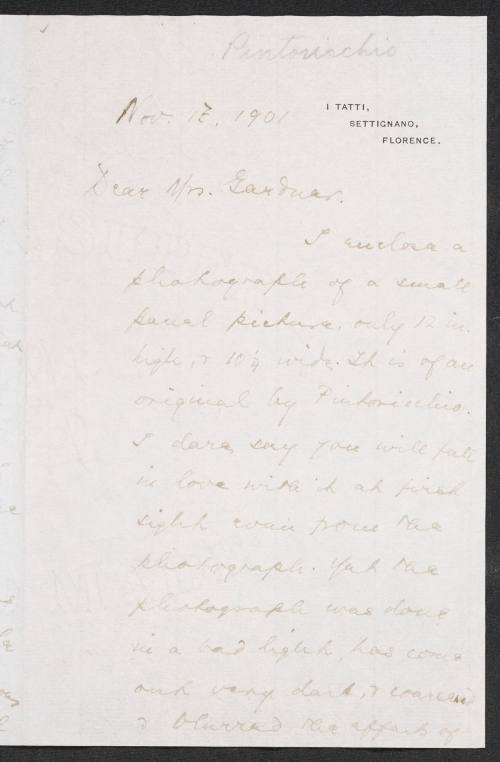 Pintoricchio
Nov. 17, 1901
I TATTI,
SETTIGNANO,
FLORENCE.
Dear Mrs. Gardner.
I enclose a
photograph of a small
panel picture, only 12 in.
high, & 10¼ wide. It is of an
original by Pintoricchio.
I dare say you will fall
in love with it at first
sight even from the
photograph. Yet the
photograph was done
in a bad light, has come
out very dark, & coarsened
& blurred the effects of